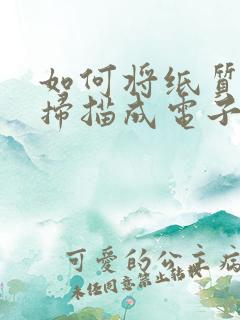 如何将纸质
掃描成電子
可愛的公主病
未经同意禁止转载